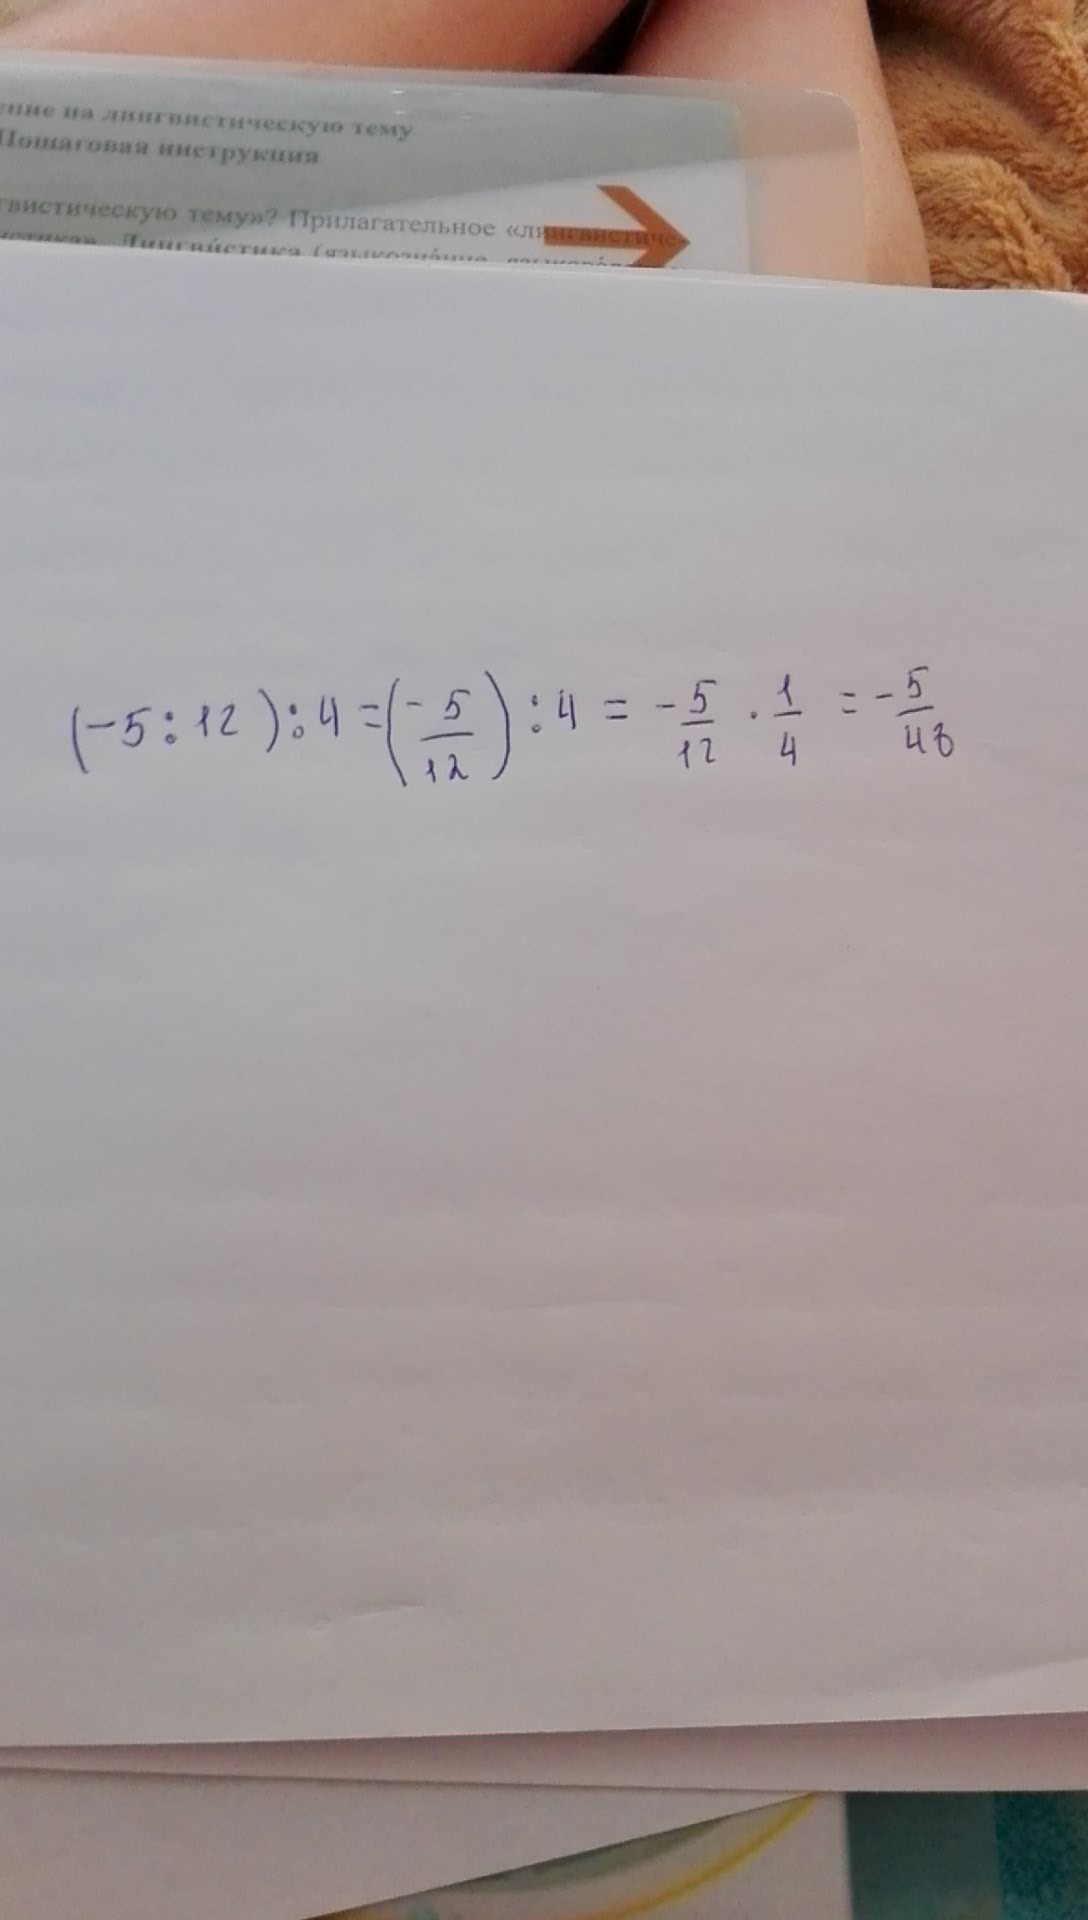 ение на лингвистическую тему
Пошаговая инструкция
гвистическую тему»? Прилагательное «лингвистиче-
истика». Лингви́стика (языкозна́ние,
(-5:12):4=(-5/12):4 = -5/12 · 1/4 = -5/48